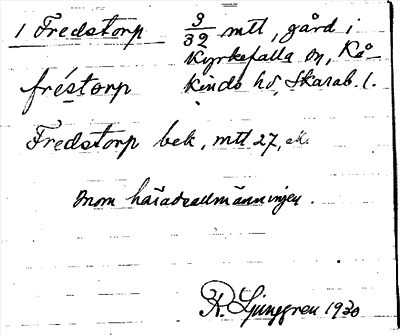 1 Fredstorp 9/32 mtt, gård i
Kyrkefalla sn, Kå-
fréstorp kinds hd, Skarab. l.
Fredstorp bek, mtl 27,
inom häradsallmänningen.
R. Ljunggren 1930